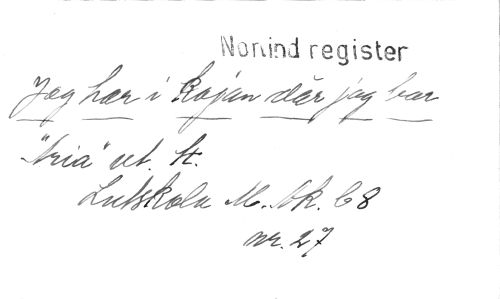 Nonind register
Jag har i kojan där jag bor
"tria" ut. st.
Lutskola M. Sk. 68
nr. 27